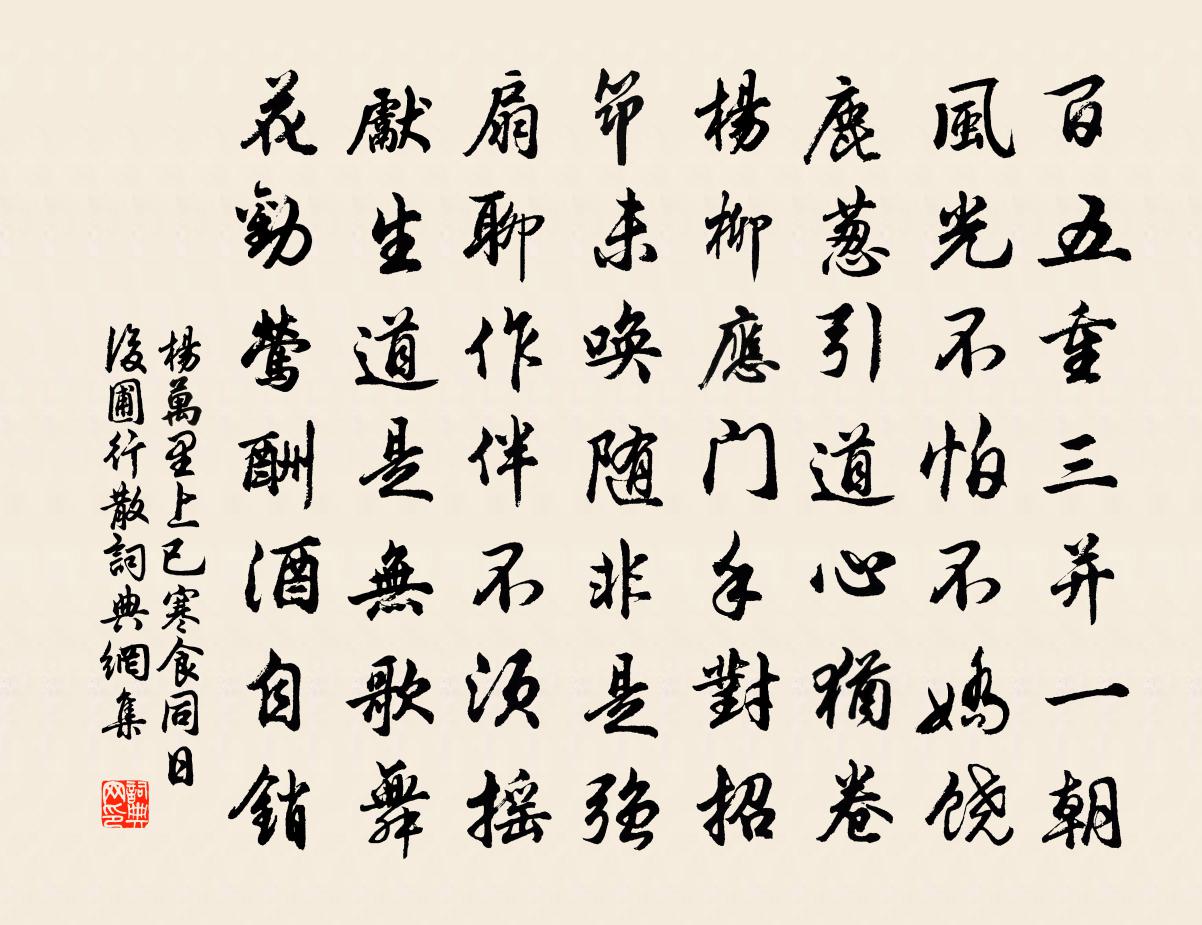 百五重三并一朝
風光不怕不嬌饒
鹿葱引道心猶卷
楊柳應门手對招
筇未唤随非是强
扇聊作伴不須摇
獻生道是無歌舞
花勸鶯酬酒自銷
楊萬里上巳寒食同日
後圃行散詞典網集
詞典网印